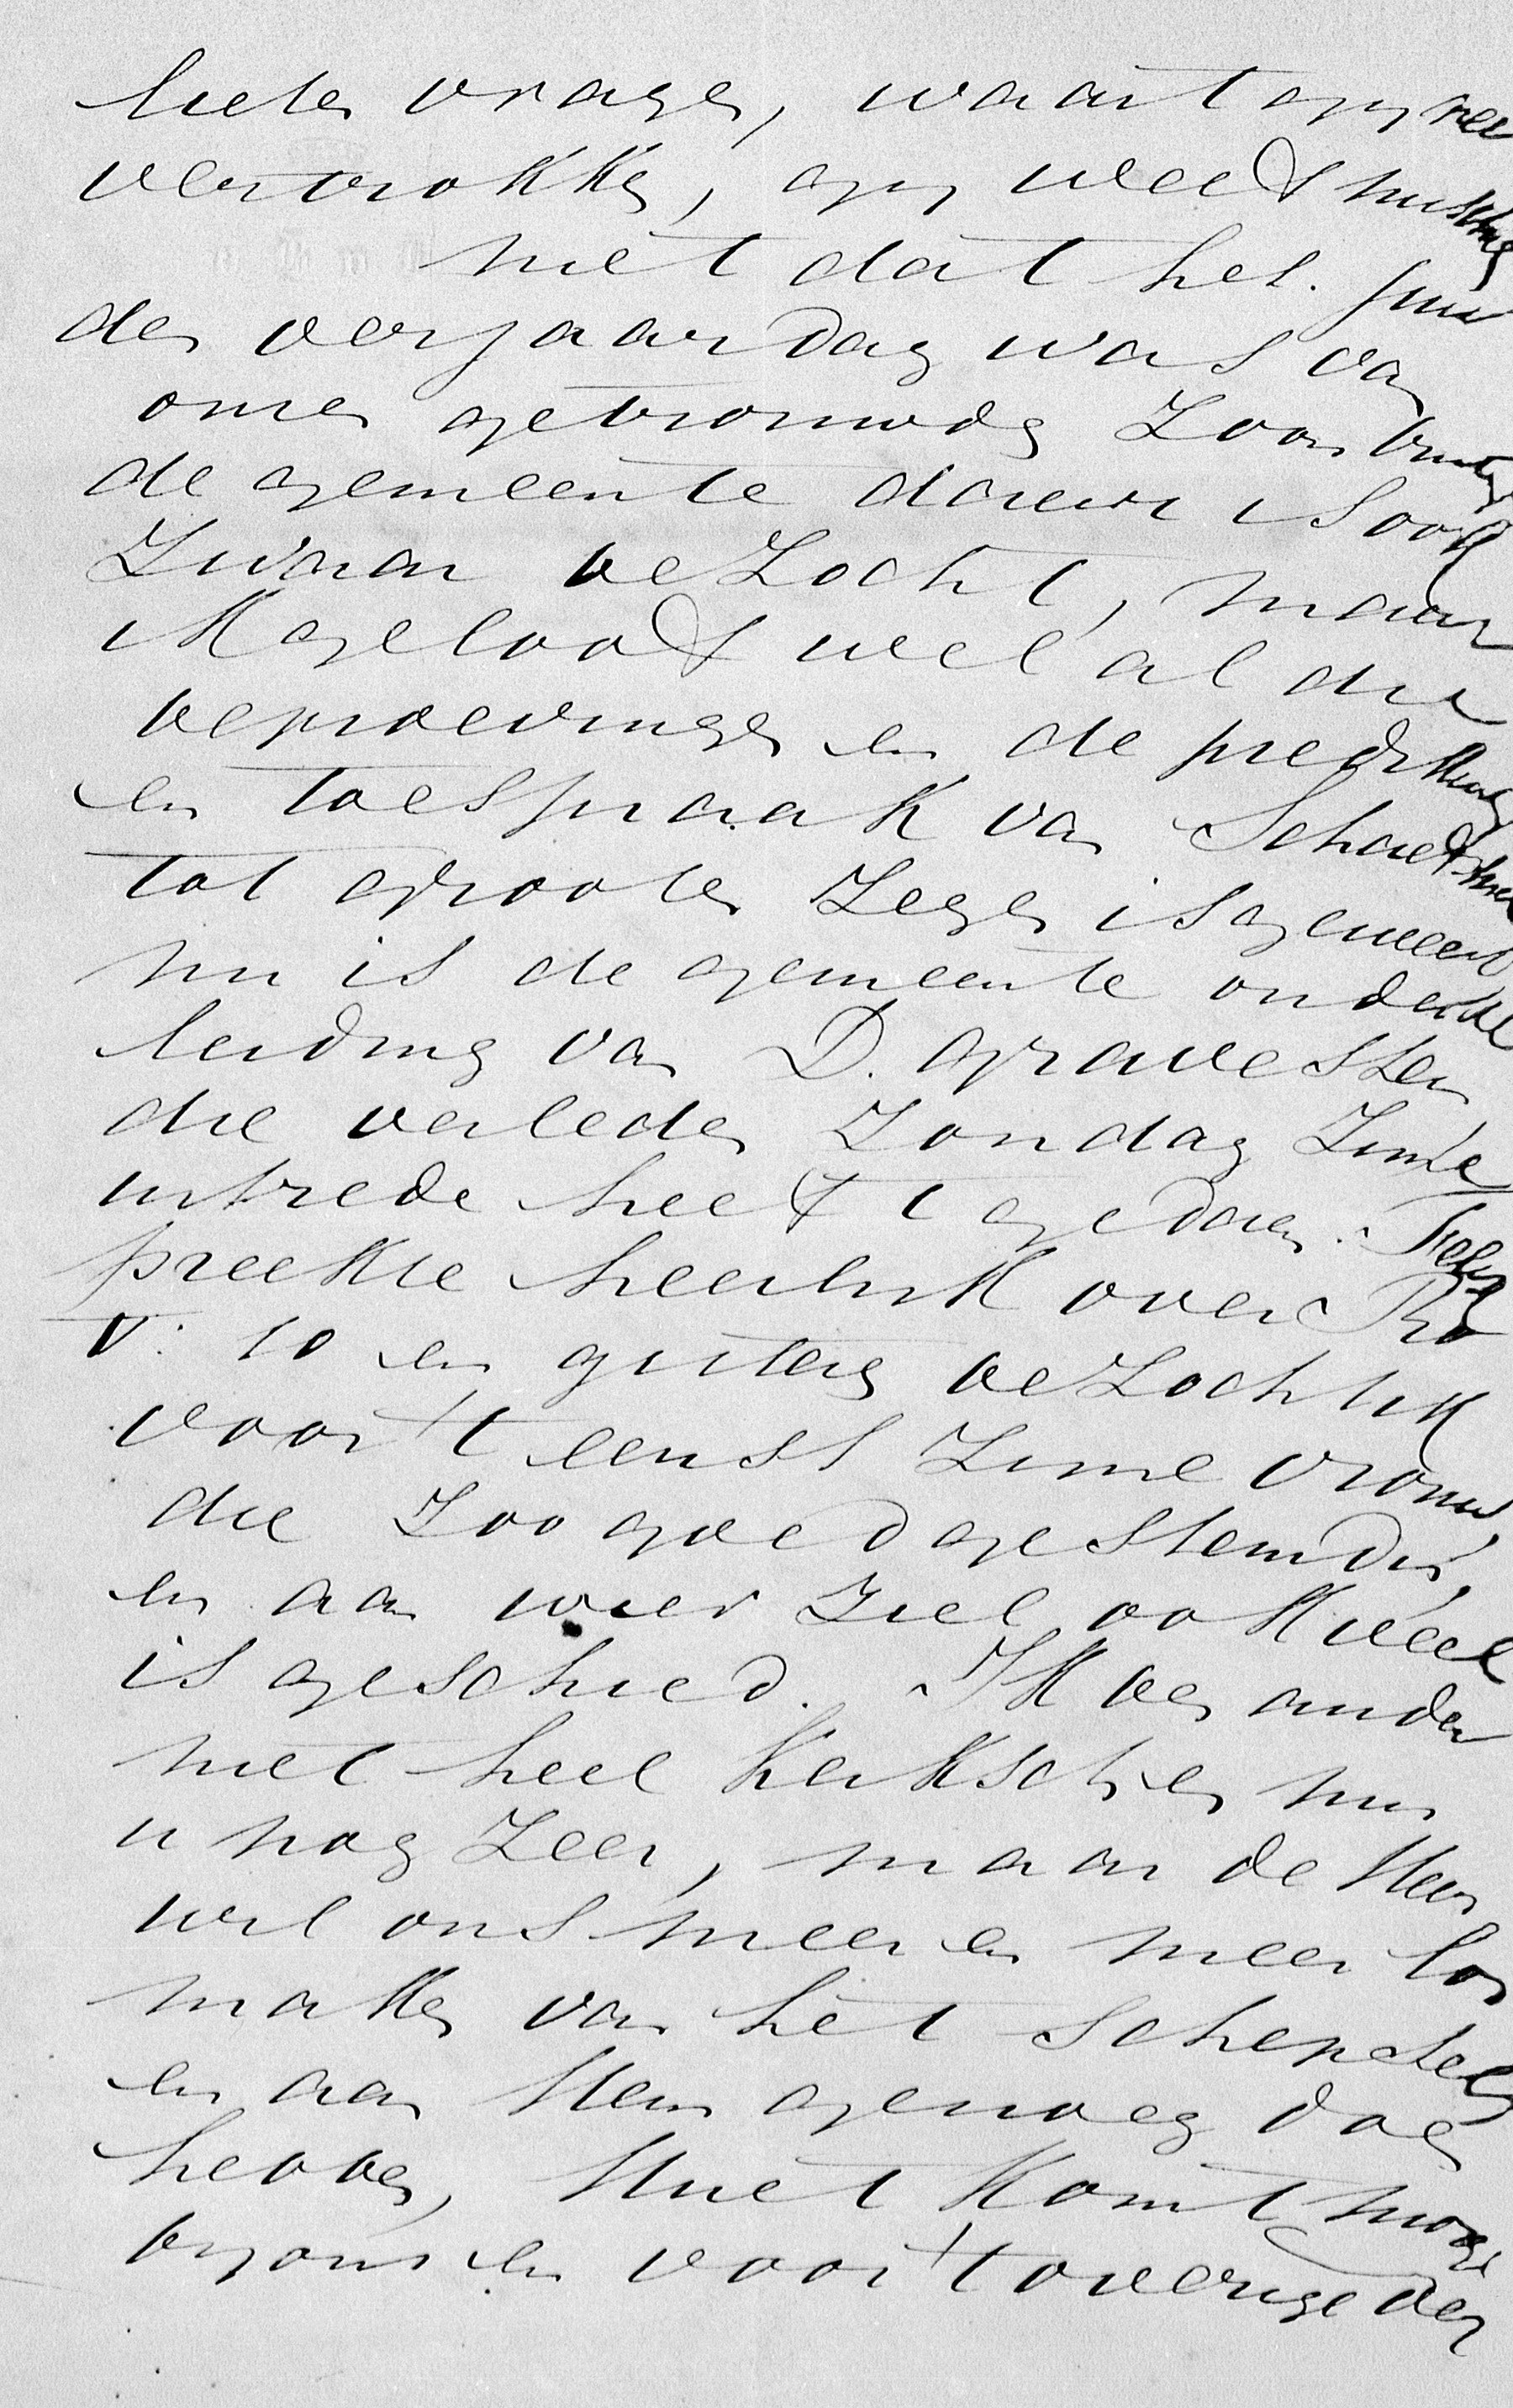 liete vragen, waart gij nee
vertrokken, gij weet misschien
niet dat het juist
den verjaardag was van
onzen getrouwden Zoon
de gemeente daar is ook
Zwaar bezocht, maar
ik geloof wel al die
beproevingen en de prediking
en toespraak van
tot grooten Zegen is geweest
nu is de gemeente onder de
leiding van D. Gravestein
die verleden Zondag Zijne
intrede heeft gedaan.
preekte heerlijk over
V: 10 en gisteren bezocht ik
voor 't eerst Zijne vrouw,
die Zoo goed gestemd is,
en aan wier Ziel ook veel
is geschied. Ik ben ander
niet heel Kerksch en mis
u nog Zeer, maar de Heer
wil ons meer en meer los
maken van het schepsel
en aan Hem genoeg doen
hebben, Huet Komt
bij ons en voor 't overige den